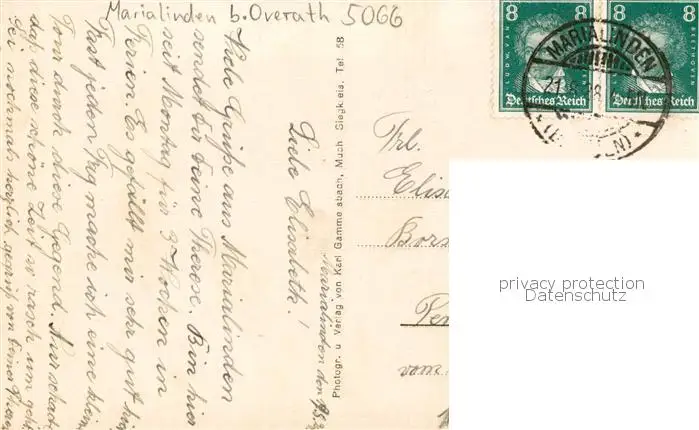 Marialinden b. Overath 5066
8
8
LUDW. VAN
Deutsches Reich
Deutsches Reich
MARIALINDEN
Marialinden den
Liebe Elisabeth!
Viele Grüße aus Marialinden
sendet Dir Deine Therese. Bin hier
seit Montag für 3 Wochen in
Ferien. Es gefällt mir sehr gut hier
Fast jeden Tag mache ich eine kleine
Tour durch diese Gegend. Nur schade
daß diese schöne Zeit so rasch um geht
Sei nochmals herzlich gegrüßt von Deiner
Photogr. u Verlag von Karl Gammersbach, Much Siegkreis. Tel. 58
Frl.
Elis
privacy protection
Datenschutz